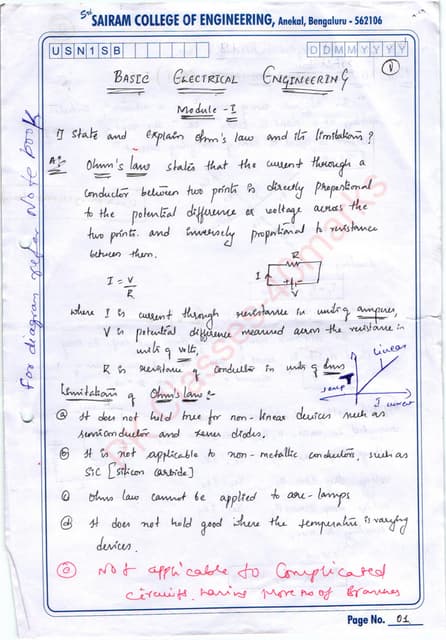 Sri SAIRAM COLLEGE OF ENGINEERING, Anekal, Bengaluru - 562106
USN 1 S B
D D M M Y Y Y Y
1
BASIC ELECTRICAL ENGINEERING
Module - I
1) State and explain ohm's law and its limitations?
A:- Ohm's law states that the current through a
conductor between two points is directly propotional
to the potential difference or voltage across the
two points. and inversely propotional to resistance
between them.
I = V/R
R
I
V
where I is current through resistance in units of amperes,
V is potential difference measured across the resistance in
units of volts,
R is resistance of conductor in units of ohms
Linear
temp
T
I current
Limitations of Ohm's law :-
a It does not hold true for non-linear devices such as
semiconductor and zener diodes.
b It is not applicable to non-metallic conductors, such as
SiC [silicon carbide]
c Ohms law cannot be applied to arc-lamps
d It does not hold good where the temperature is varying
devices.
e Not applicable to Complicated
Circuits having More no of Branches
Page No. 01
For diagram refer Note book